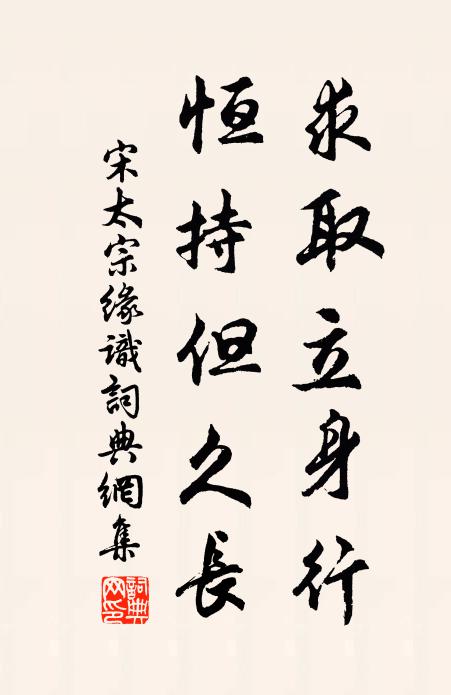 求取立身行
恒持但久長
宋太宗緣識詞典網集
詞典網印